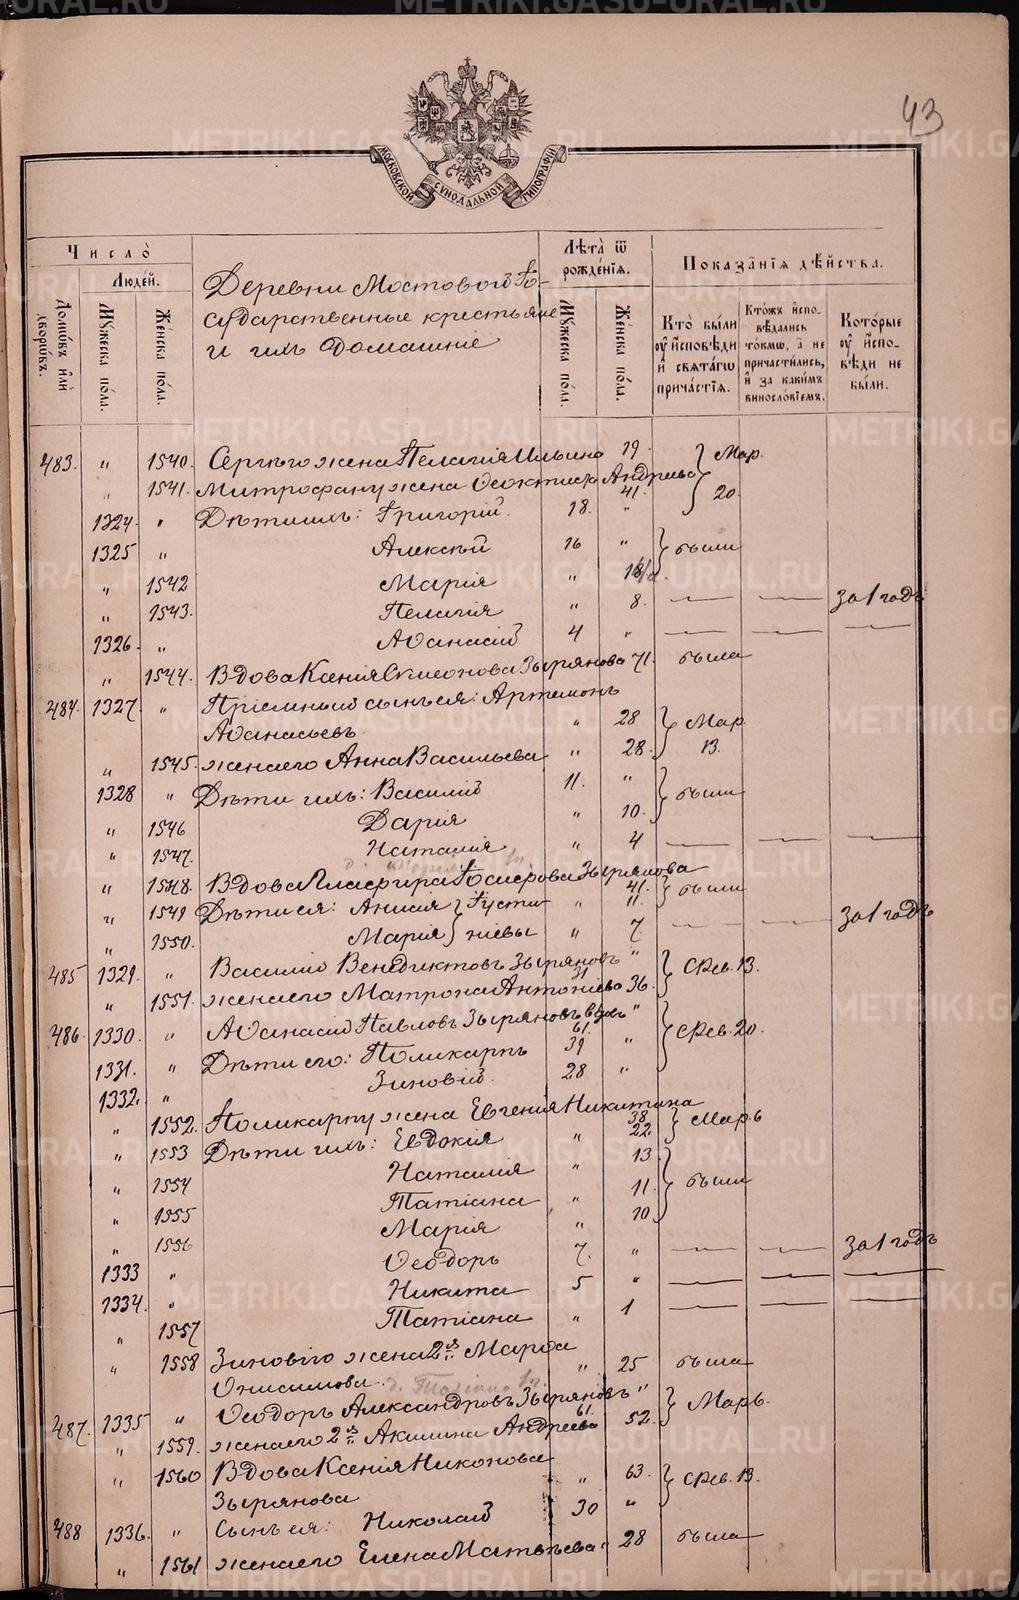 43
МОСКОВСКОЙ СѴНОДАЛЬНОЙ ТИПОГРАФІИ
Число̀
Домѡ́въ и҆лѝ дворѡ́въ.
Люде́й.
Мꙋ́жеска по́ла.
Же́нска по́ла.
Деревни Мостовой Го-
сударственные крестьяне
и ихъ домашніе
Лѣта̀ ѿ рожде́нїѧ.
Мꙋ́жеска по́ла.
Же́нска по́ла.
Показа̑нїѧ дѣ́йства.
Кто̀ бы́ли ᲂу҆ и҆сповѣ́ди и҆ свѧта́гѡ прича́стїѧ.
Кто́жъ и҆спо- вѣ́дались то́кмѡ, а҆ не причасти́лись, и҆ за каки́мъ виносло́вїемъ.
Кото́рые ᲂу҆ и҆спо- вѣ́ди не бы́ли.
483. " 1540. Сергѣю жена Пелагія Ильина 19. Мар.
" 1541. Митрофану жена Ѳеоктиста Андреева 41. 20.
1324. " Дѣти ихъ: Григорій. 18. "
1325 " Алексѣй 16 " были
" 1542 Марія "
" 1543. Пелагія " 8. за 1 годъ
1326. " Аѳанасій 4 "
" 1544. Вдова Ксенія Симеонова Зырянова 71. была
484. 1327. " Пріемный сынъ ея: Артемонъ
Аѳанасьевъ " 28 Мар.
" 1545. жена его Анна Васильева " 28. 13.
1328 " Дѣти ихъ: Василій 11. " были
" 1546 Дарія " 10.
" 1547. Наталія " 4
" 1548. Вдова Глафира Зырянова 41. были
" 1549 Дѣти ея: Анисія } Густи- " 11.
" 1550. Марія } ніевы " 7 за 1 годъ
485 1329. " Василій Венедиктовъ Зыряновъ 31 " Фев. 13.
" 1551. жена его Матрона Антоніева 36.
486. 1330. " Аѳанасій Павловъ Зыряновъ вдовъ 61. " Фев. 20.
1331. " Дѣти его: Поликарпъ 39 "
1332. " Зиновій. 28 "
" 1552. Поликарпу жена Евгенія Никитина 38. Марь
" 1553 Дѣти ихъ: Евдокія " 22.
" 1554 Наталія " 13 были
" 1555 Татіана " 11.
" 1556 Марія " 10
1333 " Ѳеодоръ 7. " за 1 годъ
1334. " Никита 5 "
" 1557 Татіана " 1
" 1558 Зиновію жена 2й Марѳа
Онисимова. " 25 была
487. 1335 " Ѳеодоръ Александровъ Зыряновъ 61. " Марь.
" 1559. жена его 2й Акилина Андреева 52.
" 1560 Вдова Ксенія Никонова
Зырянова " 63. Фев. 13.
488 1336. " Сынъ ея: Николай 30 "
" 1561 жена его Елена Матвѣева " 28 была
METRIKI.GASO-URAL.RU